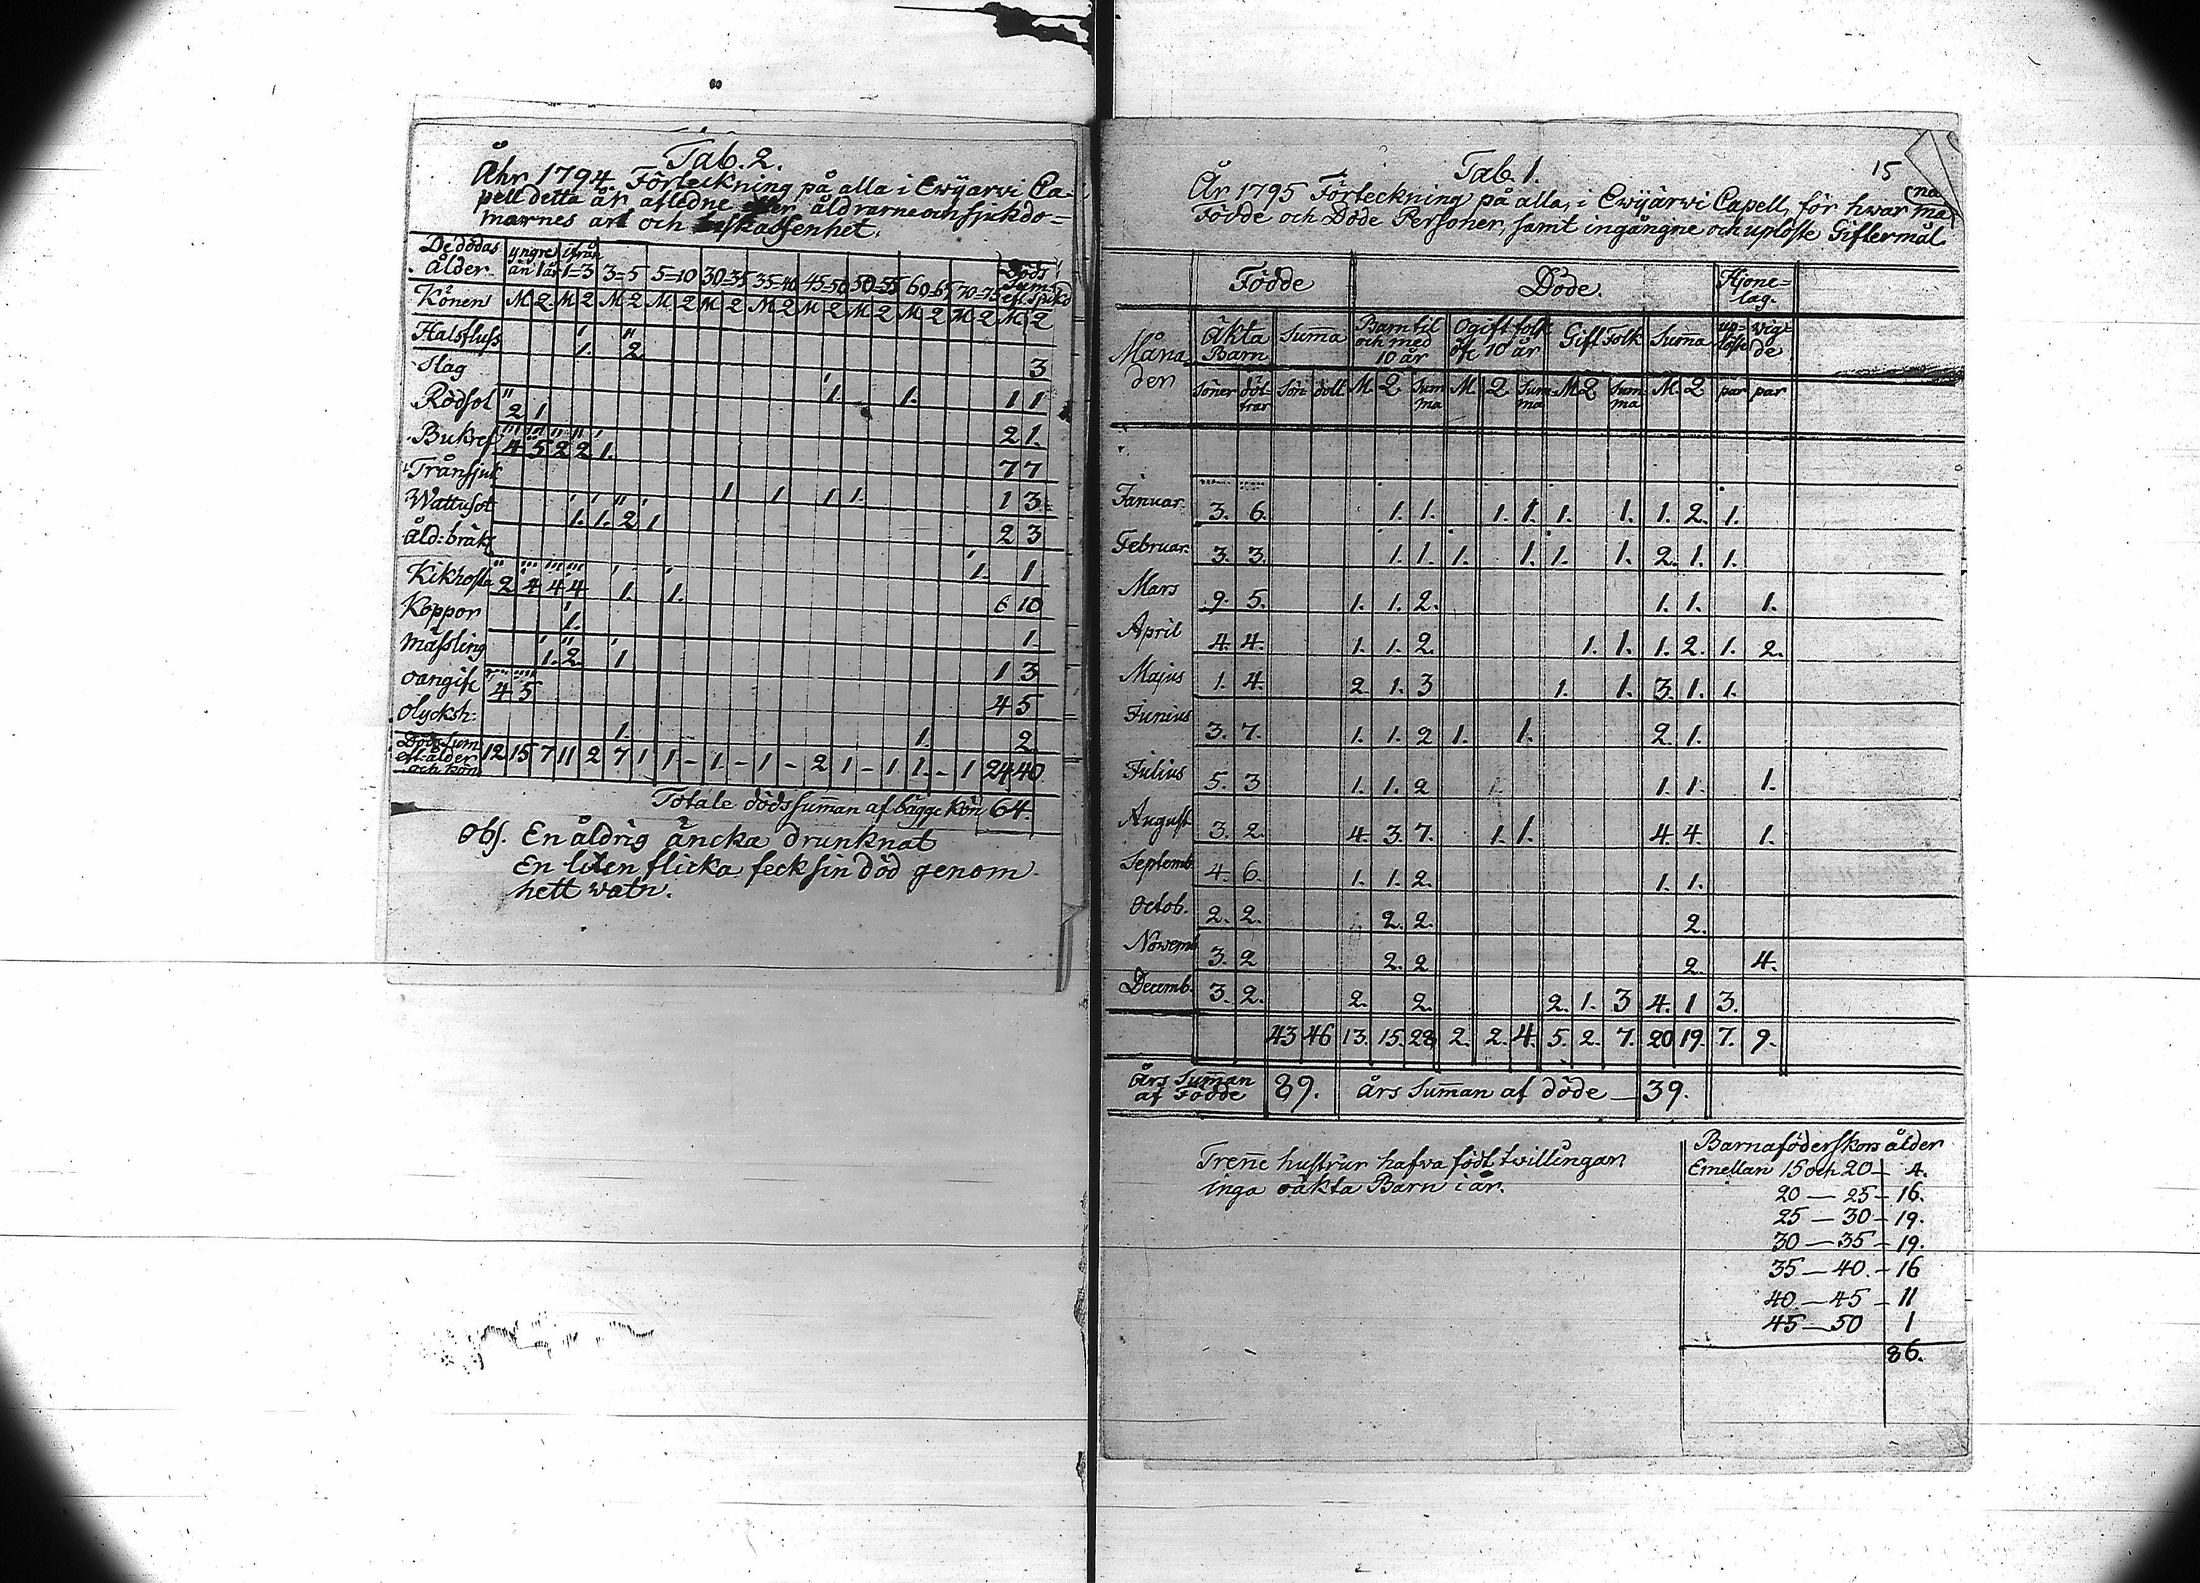 Tab. 2.
Åhr 1794. Förteckning på alla i Ewijärwi Ca=
pell detta år afledne efter åldrarne och sjukdo=
marnes art och beskaffenhet.
De dödas ålder yngre än 1 år ifrån 1=3 3=5 5=10 30=35 35=40 45=50 50=55 60=65 70=75 Döds Sum: eft. sjukd
Könen M Q M Q M Q M Q M Q M Q M Q M Q M Q M Q M Q
Halsfluss 1. 2 3
Slag 1. 1. 1 1
Rödsot 2 1 2 1.
Bukref 4 5 2 2 1. 7 7
Trånsjuk 1 1 1 1. 1 3
Wattusot 1. 1. 2 1 2 3
Åld: bräkt 1. 1
Kikhosta 2 4 4 4 1. 1. 6 10
Koppor 1. 1.
Mässling 1. 2 1 1 3
oangifc 4 5 4 5
olycksh: 1. 1. 2
Döds Sum eft. ålder och kön 12 15 7 11 2 7 1 1 - 1. - 1 - 2 1 - 1 1. - 1 24 40
Totale dödssumman af bägge Kön 64.
Obs. En åldrig äncka drunknat
En liten flicka feck sin död genom
hett watn.
15
Tab. 1.
År 1795 Förteckning på alla, i Ewijärwi Capell, för hwar ma
na
Födde och Döde Personer, samt ingångne och uplöste Giftermål
Födde Döde. Hjone=lag.
Månaden Äkta Barn Summa Barn til och med 10 år Ogift folk öfr 10 år Gift Folk Summa up=löste wigde
Söner döttrar Sön dött M. Q. Summa M. Q. Summa M. Q Summa M. Q par par
Januar. 3. 6. 1. 1. 1. 1. 1. 1. 1. 2. 1.
Februar. 3. 3. 1. 1. 1. 1. 1. 1. 2. 1. 1.
Mars 9. 5. 1. 1. 2. 1. 1. 1.
April 4. 4. 1. 1. 2. 1. 1. 1. 2. 1. 2.
Majus 1. 4. 2. 1. 3 1. 1. 3. 1. 1.
Junius 3. 7. 1. 1. 2 1. 1. 2. 1.
Julius 5. 3 1. 1. 2 1. 1. 1.
August 3. 2. 4. 3. 7. 1. 1. 4. 4. 1.
Septemb. 4. 6. 1. 1. 2. 1. 1.
Octob. 2. 2. 2. 2. 2.
Nowemb 3. 2 2. 2 2. 4.
Decemb. 3. 2. 2. 2. 2. 1. 3 4. 1 3.
43 46 13. 15. 28 2. 2. 4. 5. 2. 7. 20 19. 7. 9.
Års Summan af Födde 89. Års Summan af döde 39.
Trenne hustrur hafva födt twillingar
inga oäkta Barn i år.
Barnaföderskors ålder
Emellan 15 och 20 - 4.
20 — 25 - 16.
25 — 30 - 19.
30 — 35 - 19.
35 — 40. - 16
40 — 45 - 11
45 — 50 1
86.